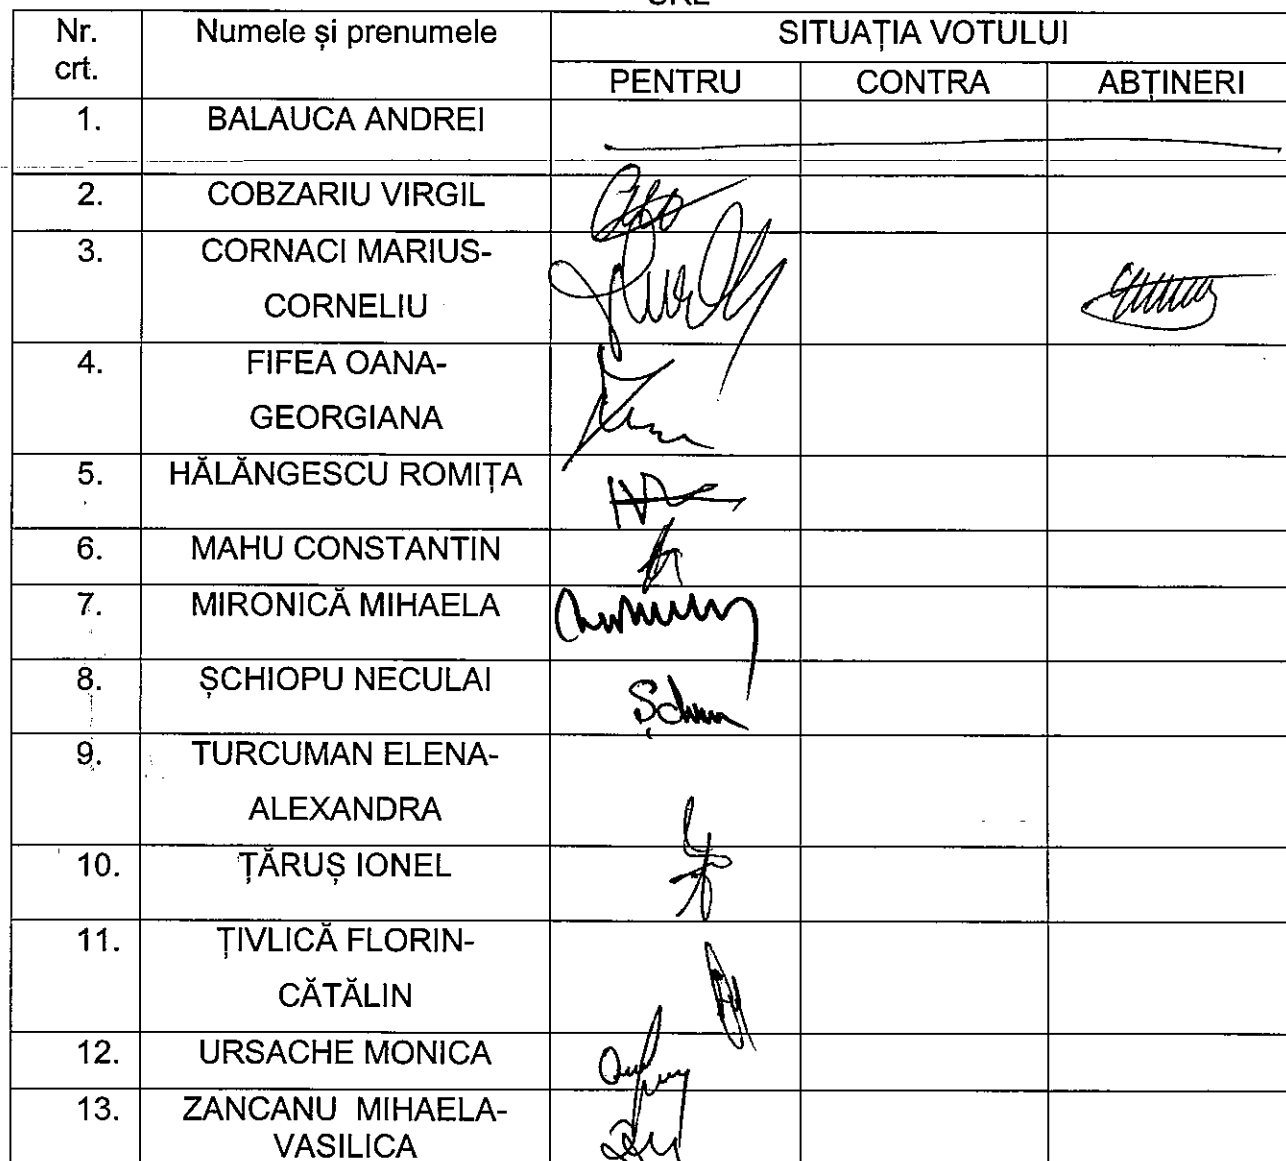 Nr. Numele și prenumele SITUAȚIA VOTULUI
crt.
PENTRU CONTRA ABȚINERI
1. BALAUCA ANDREI
2. COBZARIU VIRGIL
3. CORNACI MARIUS-
CORNELIU
4. FIFEA OANA-
GEORGIANA
5. HĂLĂNGESCU ROMIȚA
6. MAHU CONSTANTIN
7. MIRONICĂ MIHAELA
8. ȘCHIOPU NECULAI
9. TURCUMAN ELENA-
ALEXANDRA
10. ȚĂRUȘ IONEL
11. ȚIVLICĂ FLORIN-
CĂTĂLIN
12. URSACHE MONICA
13. ZANCANU MIHAELA-
VASILICA